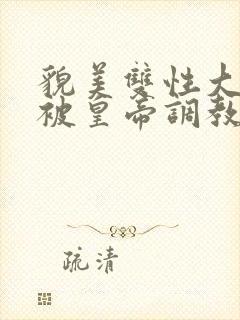 貌美雙性大
被皇帝調教
疏清